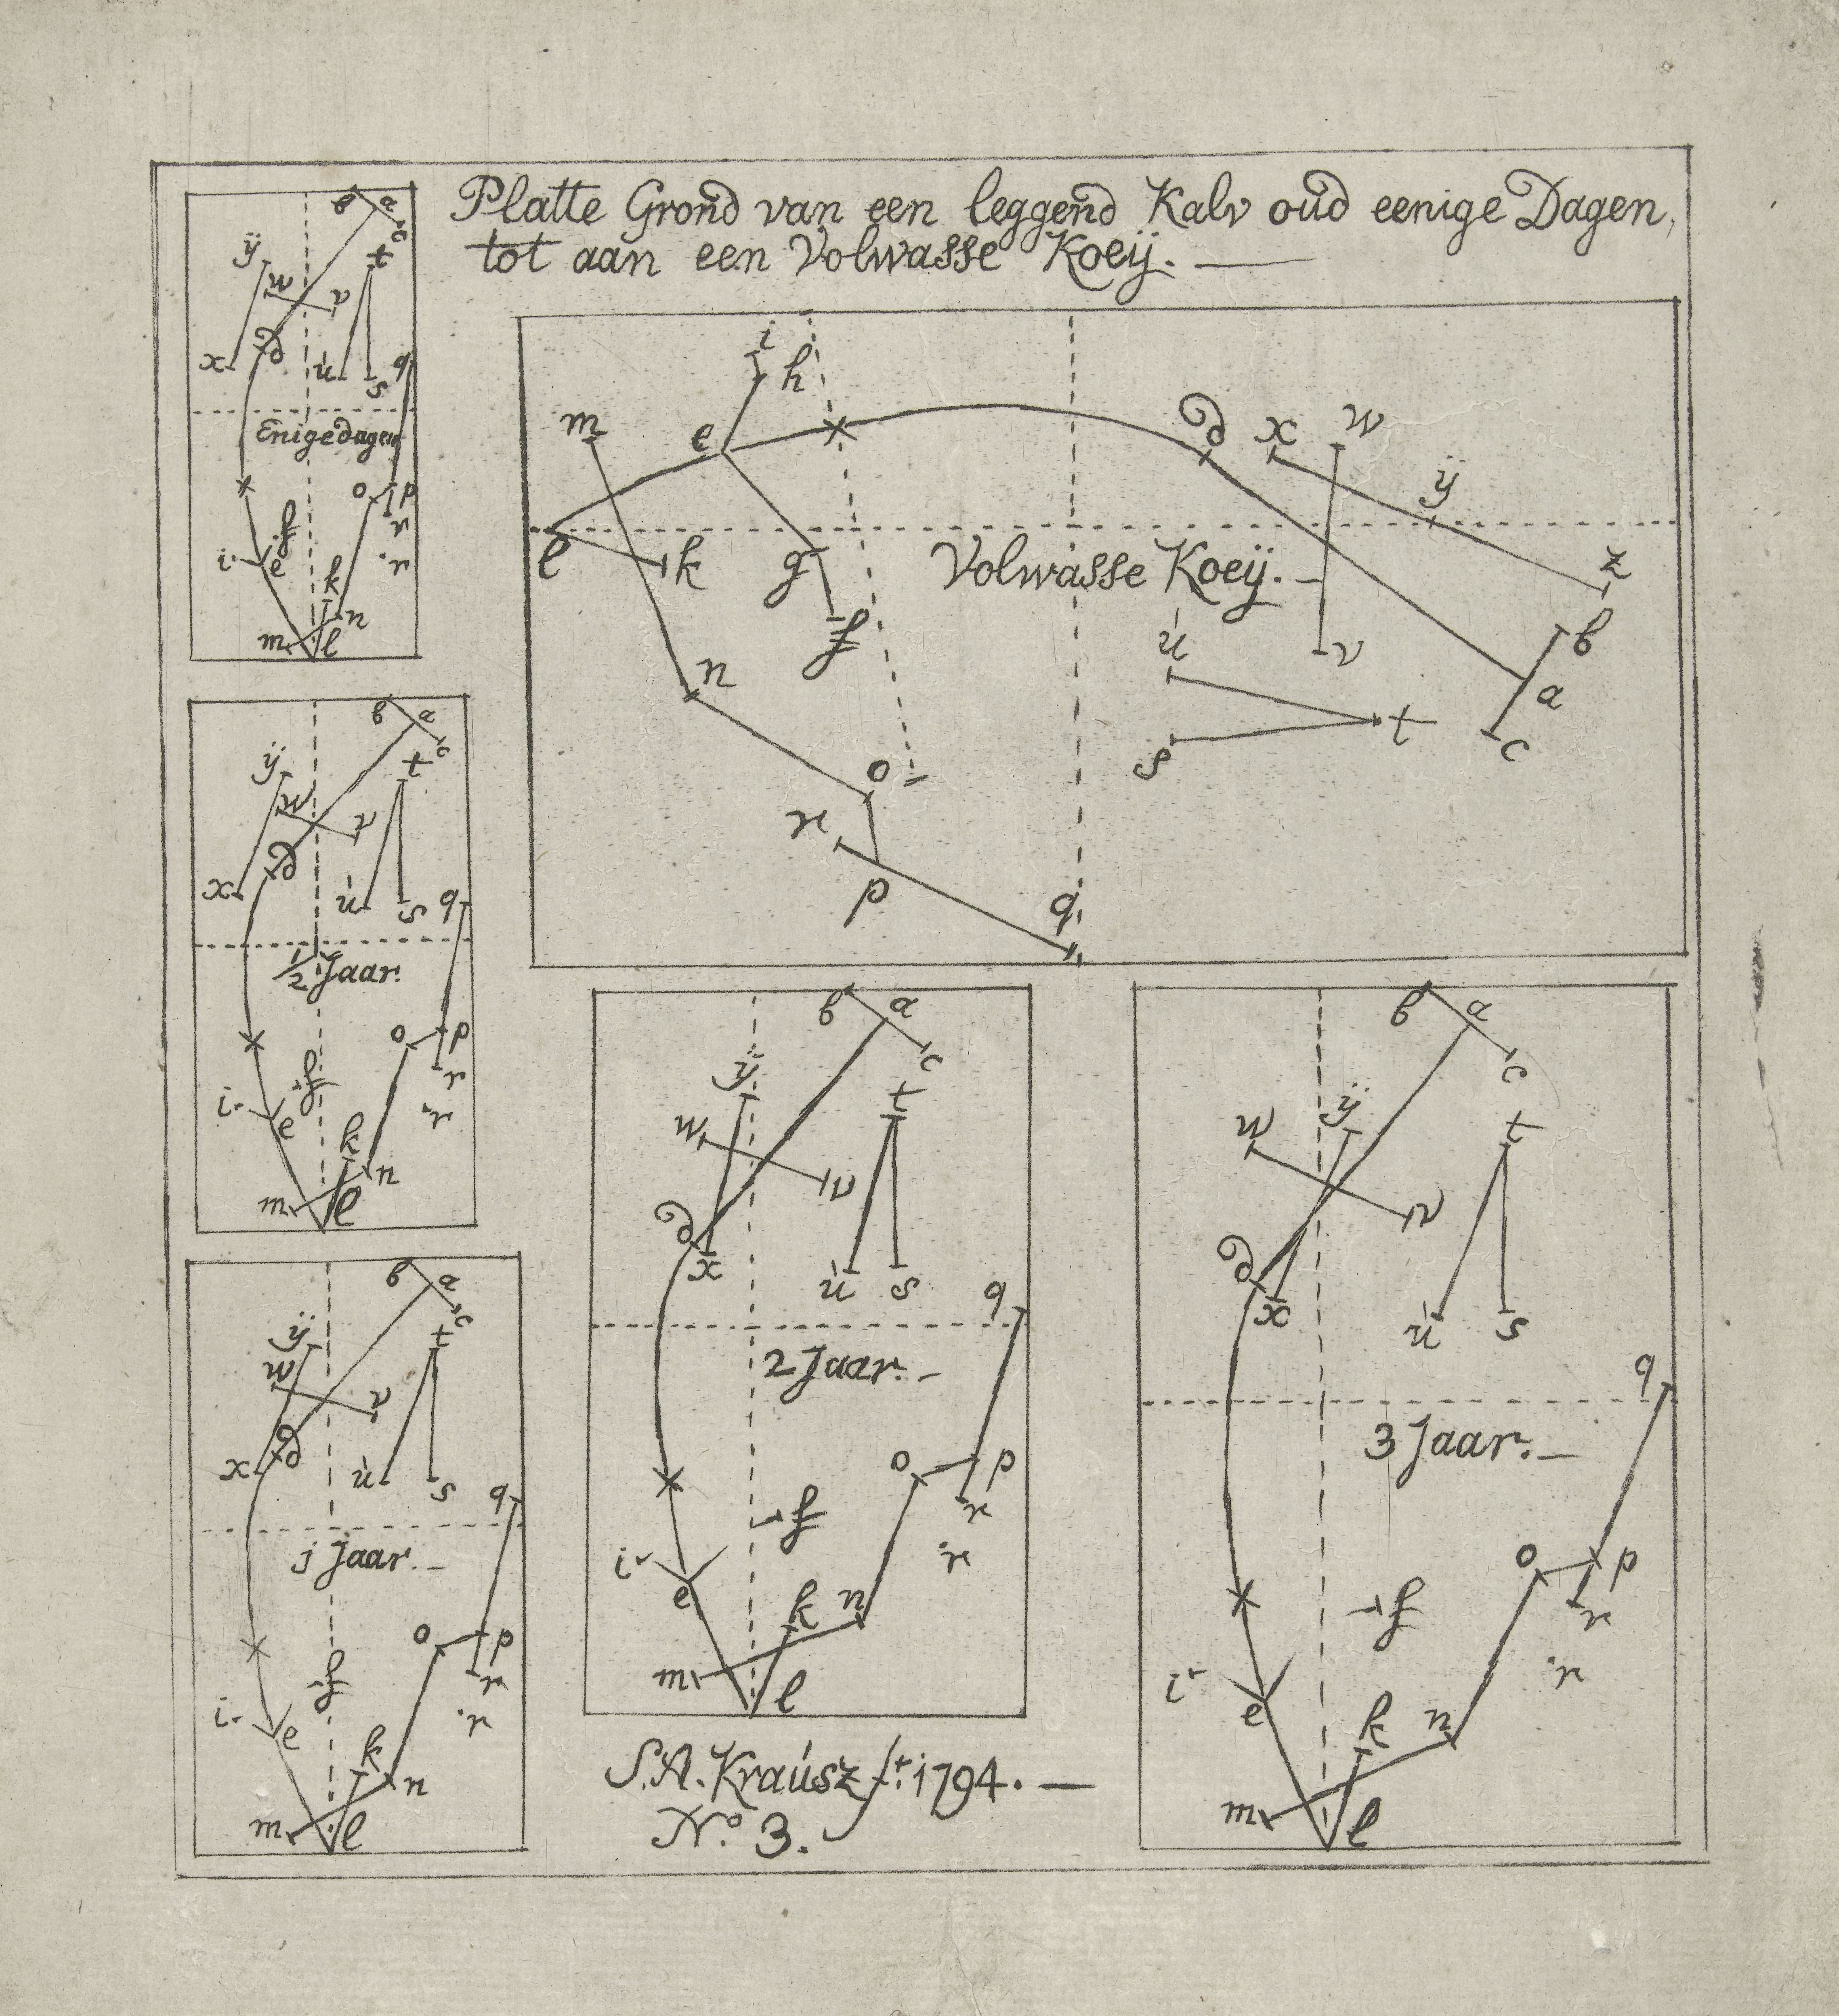 Platte Grond van een leggend Kalv oud eenige Dagen,
tot aan een Volwasse Koeij.
b a c
ÿ w v t
x d u s q
Enige dagen
o p
r
f
i e r
k
n
m l
i h
m e d x w
ÿ
l k g Volwasse Koeij. z
f b
n u v a
s t c
o
r
p q
b a c
ÿ w v t
x d u s q
1/2 Jaar.
o p
f r
i e r
k
m l n
b a c
ÿ t
w v
d x u s q
2 Jaar.
o p
f r
i e r
k n
m l
b a c
ÿ t
w v
d x u s q
3 Jaar.
o p
f r
i e r
k n
m l
b a c
ÿ t
w v
x d u s q
j Jaar.
o p
f r
i e r
k n
m l
S.A. Kraúsz ft. 1794.
No. 3.